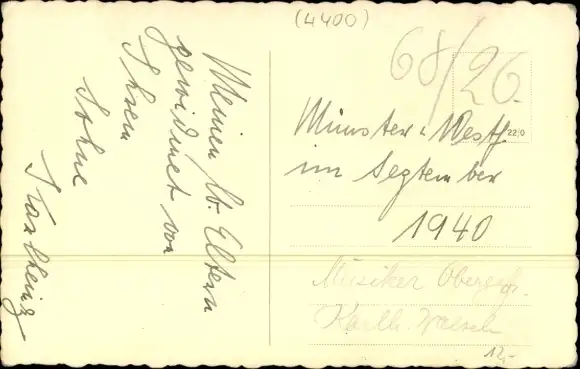 (4400)
68/26.
Meinen lb. Eltern
gewidmet von
Ihrem
Sohne
Karlheinz
Münster i. Westf.
22/0
im September
1940
Musiker Obergefr.
Karlh.
12,-